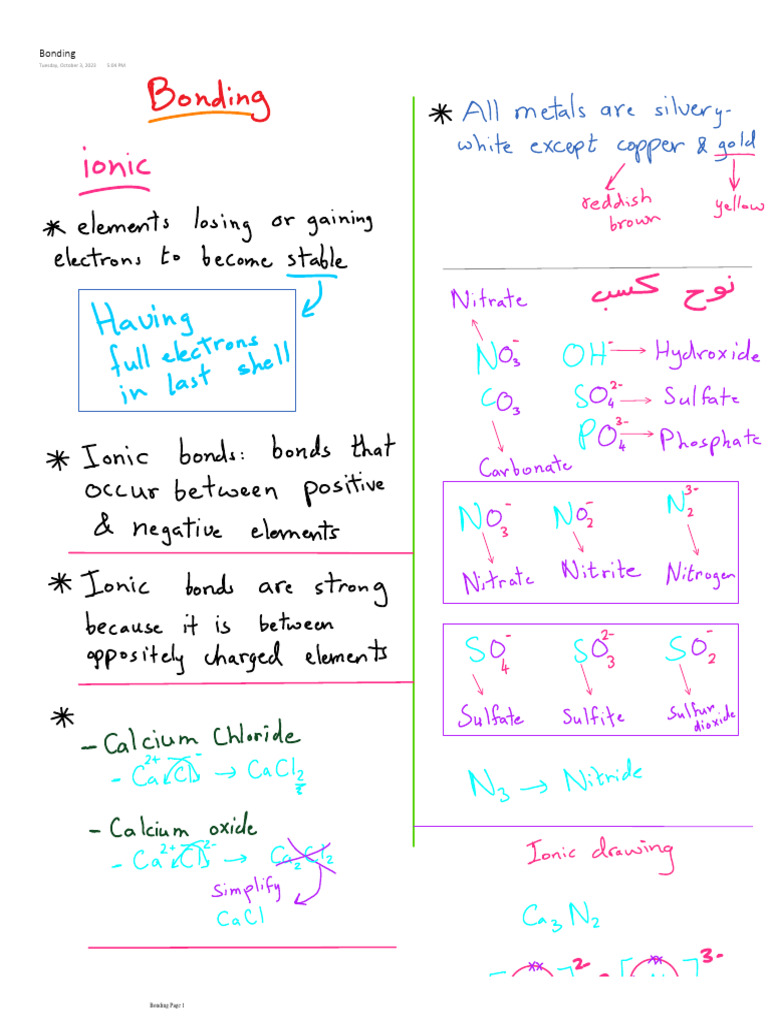 Bonding
Tuesday, October 3, 2023 5:04 PM
Bonding
ionic
* elements losing or gaining
electrons to become stable
Having
full electrons
in last shell
* Ionic bonds: bonds that
occur between positive
& negative elements
* Ionic bonds are strong
because it is between
oppositely charged elements
*
- Calcium Chloride
- Ca²⁺ Cl⁻ → CaCl₂
- Calcium oxide
- Ca²⁺ Cl²⁻ → Ca₂Cl₂
simplify
CaCl
* All metals are silvery-
white except copper & gold
reddish
brown
yellow
Nitrate
نوح كسب
NO₃⁻
OH⁻ → Hydroxide
CO₃
SO₄²⁻ → Sulfate
PO₄³⁻ → Phosphate
Carbonate
NO₃⁻ NO₂⁻ N₂³⁻
Nitrate Nitrite Nitrogen
SO₄⁻ SO₃²⁻ SO₂⁻
Sulfate Sulfite Sulfur
dioxide
N₃ → Nitride
Ionic drawing
Ca₃N₂
2- 3-
Bonding Page 1